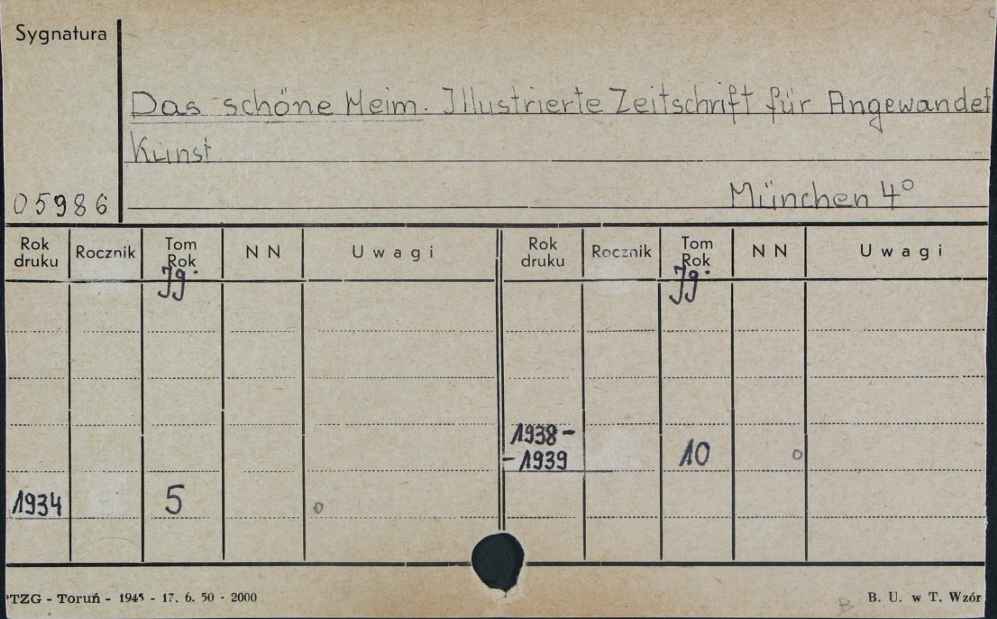 Sygnatura
Das schöne Heim. Illustrierte Zeitschrift für Angewandet
Kunst
05986
München 4°
Rok druku Rocznik Tom Rok NN Uwagi Rok druku Rocznik Tom Rok NN Uwagi
Jg. Jg.
1938 -
- 1939 10 o
1934 5 o
TZG - Toruń - 1945 - 17. 6. 50 - 2000
B. U. w T. Wzór
B